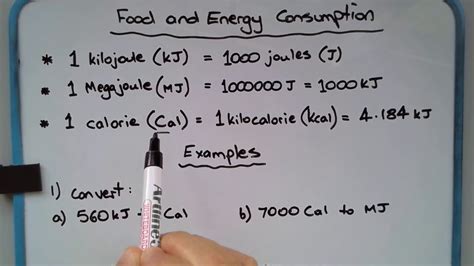 Food and Energy Consumption
* 1 kilojoule (kJ) = 1000 joules (J)
* 1 Megajoule (MJ) = 1000000 J = 1000 kJ
* 1 calorie (Cal) = 1 kilocalorie (kcal) = 4.184 kJ
Examples
1) Convert:
a) 560 kJ Cal b) 7000 Cal to MJ
Artline